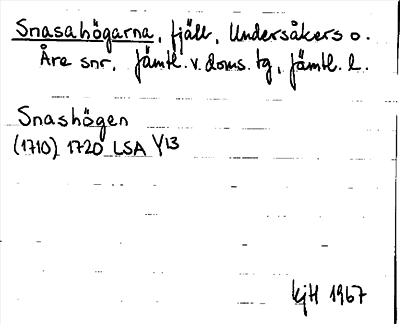 Snasahögarna, fjäll, Undersåkers o.
Åre snr, Jämtl. v. doms. tg, Jämtl. l.
Snashögen
(1710) 1720 LSA Y13
kjH 1967